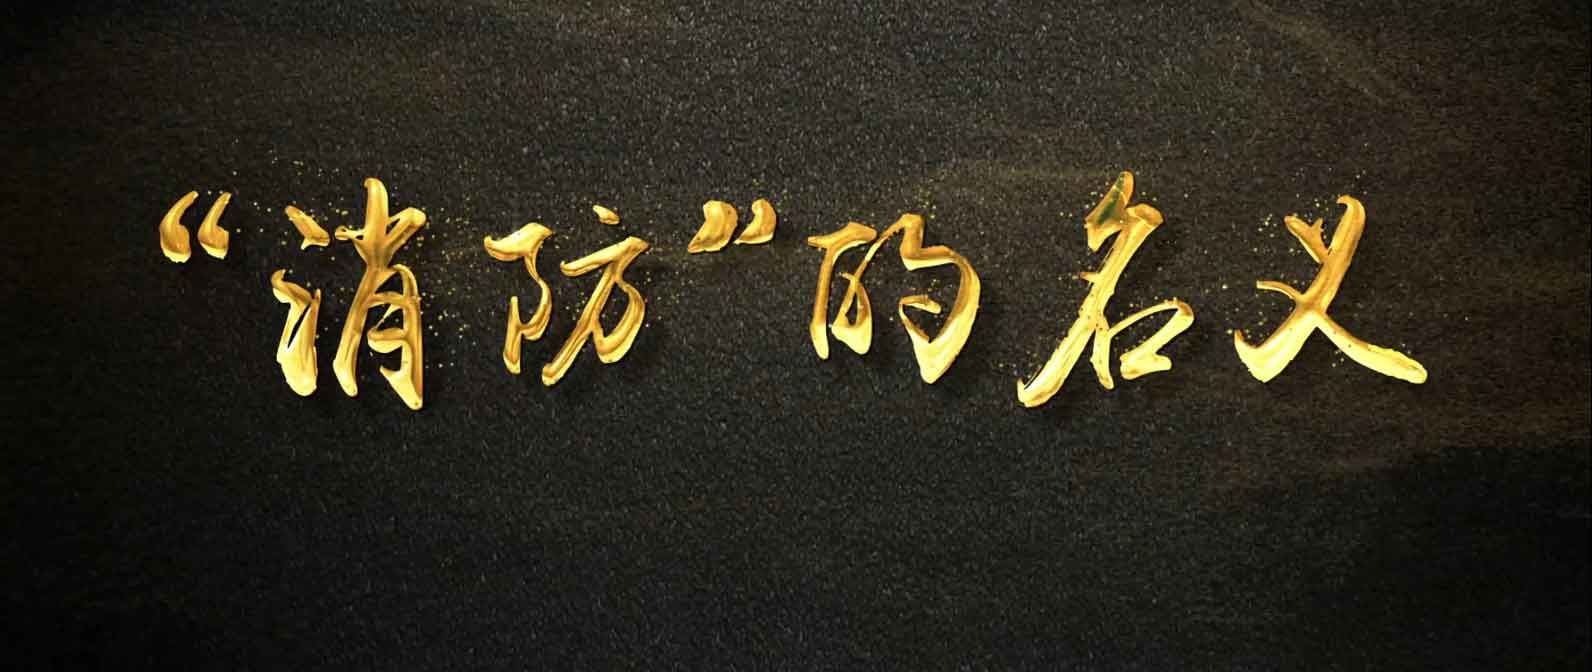 “消防”的名义